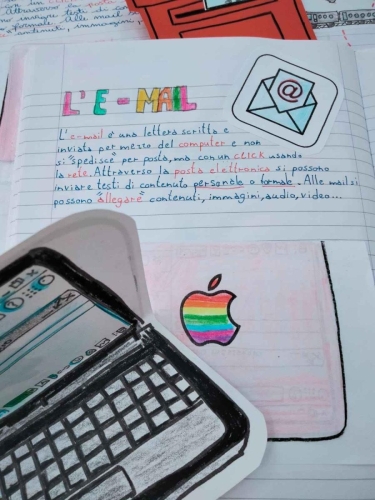 L'E-MAIL
@
L'e-mail è una lettera scritta e
inviata per mezzo del computer e non
si "spedisce" per posta, ma con un CLICK usando
la rete. Attraverso la posta elettronica si possono
inviare testi di contenuto personale o formale. Alle mail si
possono "allegare" contenuti, immagini, audio, video...